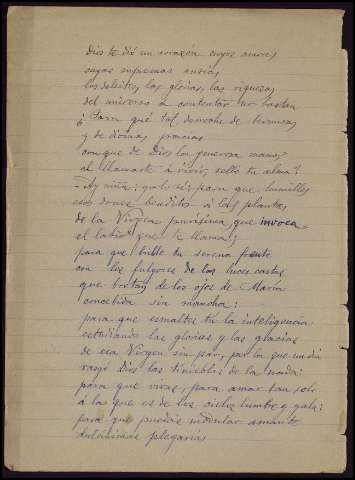 Dios te dió un corazón cuyos amores
cuyas supremas ansias
los deleites, las glorias, las riquezas
del universo a contentar no bastan
¿Para qué tal derroche de ternuras
y de divinas gracias
con que de Dios la generosa mano,
al llamarte á vivir, selló tu alma?
- Ay niña; yo lo sé: para que humilles
esos dones benditos á las plantas
de la Virgen purísima que invoca
el labio que te llama;
para que brille tu serena frente
con los fulgores de las luces castas
que brotan de los ojos de María
concebida sin mancha:
para que esmaltes tu la inteligencia
estudiando las glorias y las gracias
de esa Virgen sin par, por la que un día
rasgó Dios las tinieblas de la nada:
para que vivas, para amar tan solo
á la que es de los cielos lumbre y gala:
para que puedas modular amante
dulcísimas plegarias